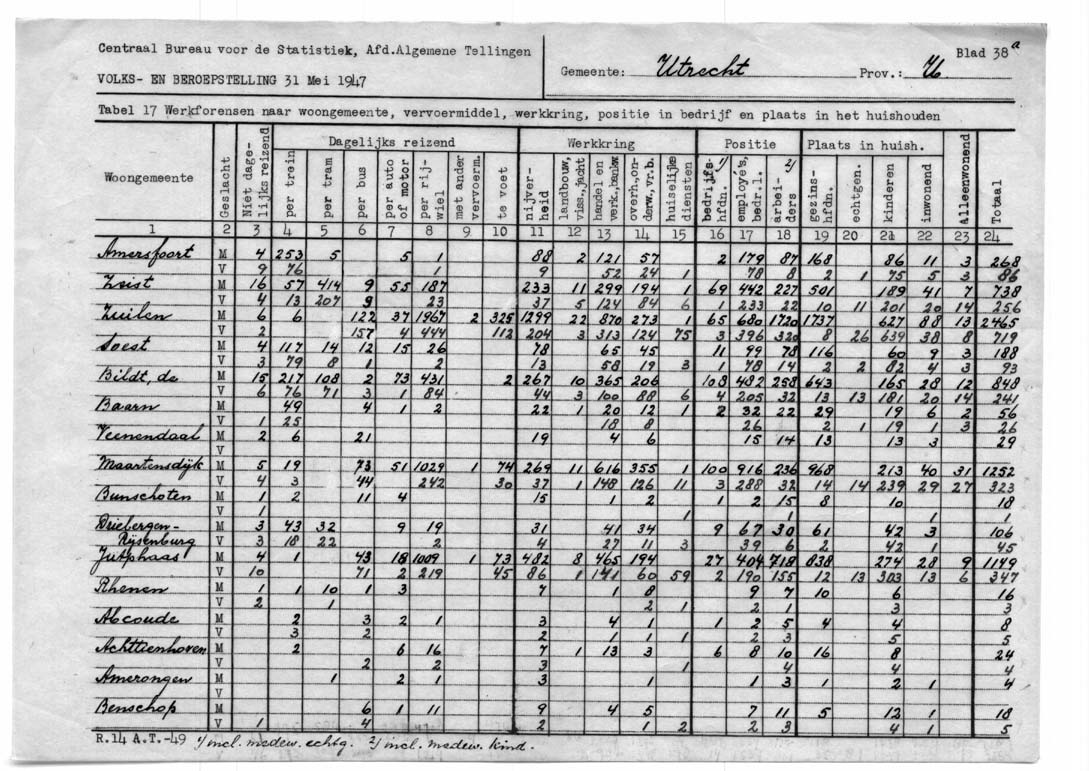 Centraal Bureau voor de Statistiek, Afd.Algemene Tellingen
VOLKS- EN BEROEPSTELLING 31 Mei 1947
Gemeente: Utrecht Prov.: U Blad 38a
Tabel 17 Werkforensen naar woongemeente, vervoermiddel, werkkring, positie in bedrijf en plaats in het huishouden
Woongemeente Geslacht Niet dagelijks reizend Dagelijks reizend Werkkring Positie Plaats in huish. Alleenwonend Totaal
per trein per tram per bus per auto of motor per rijwiel met ander vervoerm. te voet nijverheid landbouw, viss., jacht handel en verk., bankw. overh., onderw., vr.b. huiselijke diensten bedrijfshfdn. 1) employé's, bedr.l. arbeiders 2) gezinshfdn. echtgen. kinderen inwonend
1 2 3 4 5 6 7 8 9 10 11 12 13 14 15 16 17 18 19 20 21 22 23 24
Amersfoort M 4 253 5 5 1 88 2 121 57 2 179 87 168 86 11 3 268
V 9 76 1 9 52 24 1 78 8 2 1 75 5 3 86
Zeist M 16 57 414 9 55 187 233 11 299 194 1 69 442 227 501 189 41 7 738
V 4 13 207 9 23 37 5 124 84 6 1 233 22 10 11 201 20 14 256
Zuilen M 6 6 122 37 1967 2 325 1299 22 870 273 1 65 680 1720 1737 627 88 13 2465
V 2 157 4 444 112 204 3 313 124 75 3 396 320 8 26 639 38 8 719
Soest M 4 117 14 12 15 26 78 65 45 11 99 78 116 60 9 3 188
V 3 79 8 1 2 13 58 19 3 1 78 14 2 2 82 4 3 93
Bildt, de M 15 217 108 2 73 431 2 267 10 365 206 108 482 258 643 165 28 12 848
V 6 76 71 3 1 84 44 3 100 88 6 4 205 32 13 13 181 20 14 241
Baarn M 49 4 1 2 22 1 20 12 1 2 32 22 29 19 6 2 56
V 1 25 18 8 26 2 1 19 1 3 26
Veenendaal M 2 6 21 19 4 6 15 14 13 13 3 29
V
Maartensdijk M 5 19 73 51 1029 1 74 269 11 616 355 1 100 916 236 968 213 40 31 1252
V 4 3 44 242 30 37 1 148 126 11 3 288 32 14 14 239 29 27 323
Bunschoten M 1 2 11 4 15 1 2 1 2 15 8 10 18
V 1 1 1 1 1
Driebergen- M 3 43 32 9 19 31 41 34 9 67 30 61 42 3 106
Rijsenburg V 3 18 22 2 4 27 11 3 39 6 2 42 1 45
Jutphaas M 4 1 43 18 1009 1 73 482 8 465 194 27 404 718 838 274 28 9 1149
V 10 71 2 219 45 86 1 141 60 59 2 190 155 12 13 303 13 6 347
Rhenen M 1 1 10 1 3 7 1 8 9 7 10 6 16
V 2 1 2 1 2 1 3 3
Abcoude M 2 3 2 1 3 4 1 1 2 5 4 4 8
V 3 2 2 1 1 1 2 3 5 5
Achttienhoven M 2 6 16 7 1 13 3 6 8 10 16 8 24
V 2 2 3 1 4 4 4
Amerongen M 1 2 1 3 1 1 3 1 2 1 4
V
Benschop M 6 1 11 9 4 5 7 11 5 12 1 18
V 1 4 2 1 2 2 3 4 1 5
R.14 A.T.-49 1/ incl. medew. echtg. 2/ incl. medew. kind.